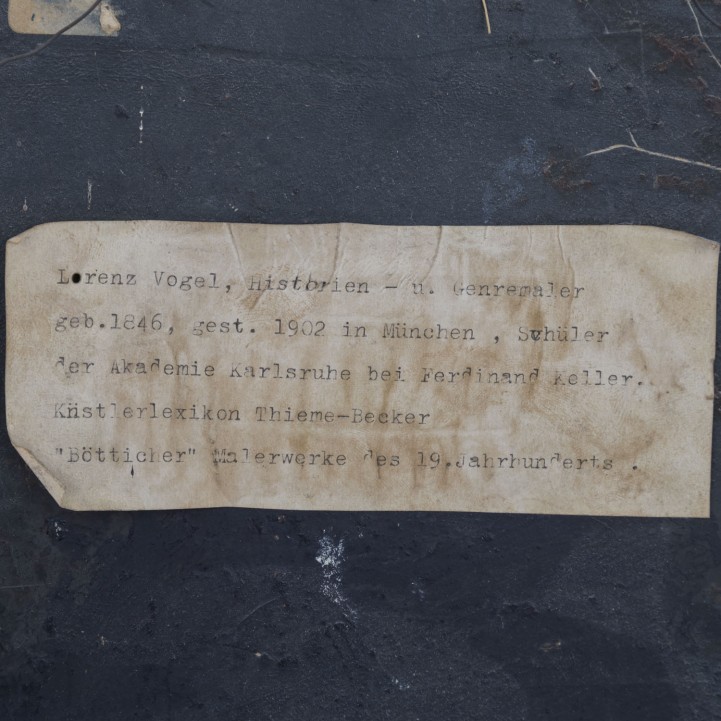 Lorenz Vogel, Historien - u. Genremaler
geb.1846, gest. 1902 in München , Schüler
der Akademie Karlsruhe bei Ferdinand Keller.
Künstlerlexikon Thieme-Becker
"Bötticher" Malerwerke des 19.Jahrhunderts .